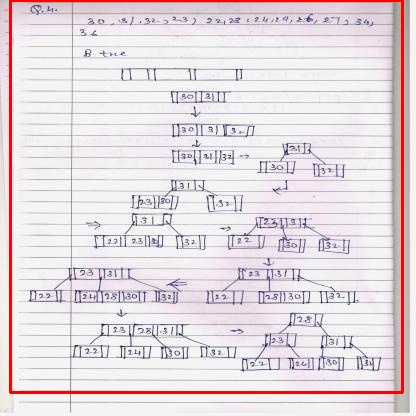 Q.4.
30, 31, 32, 23, 22, 28, 24, 29, 26, 27, 34,
36
B tree
30 31
30 31 32
30 31 32 → 31
30 32
31
23 30 32
31 23 31
22 23 30 32 → 22 30 32
23 31 23 31
22 24 28 30 32 22 28 30 32
23 28 31 → 28
23 31
22 24 30 32 22 24 30 32